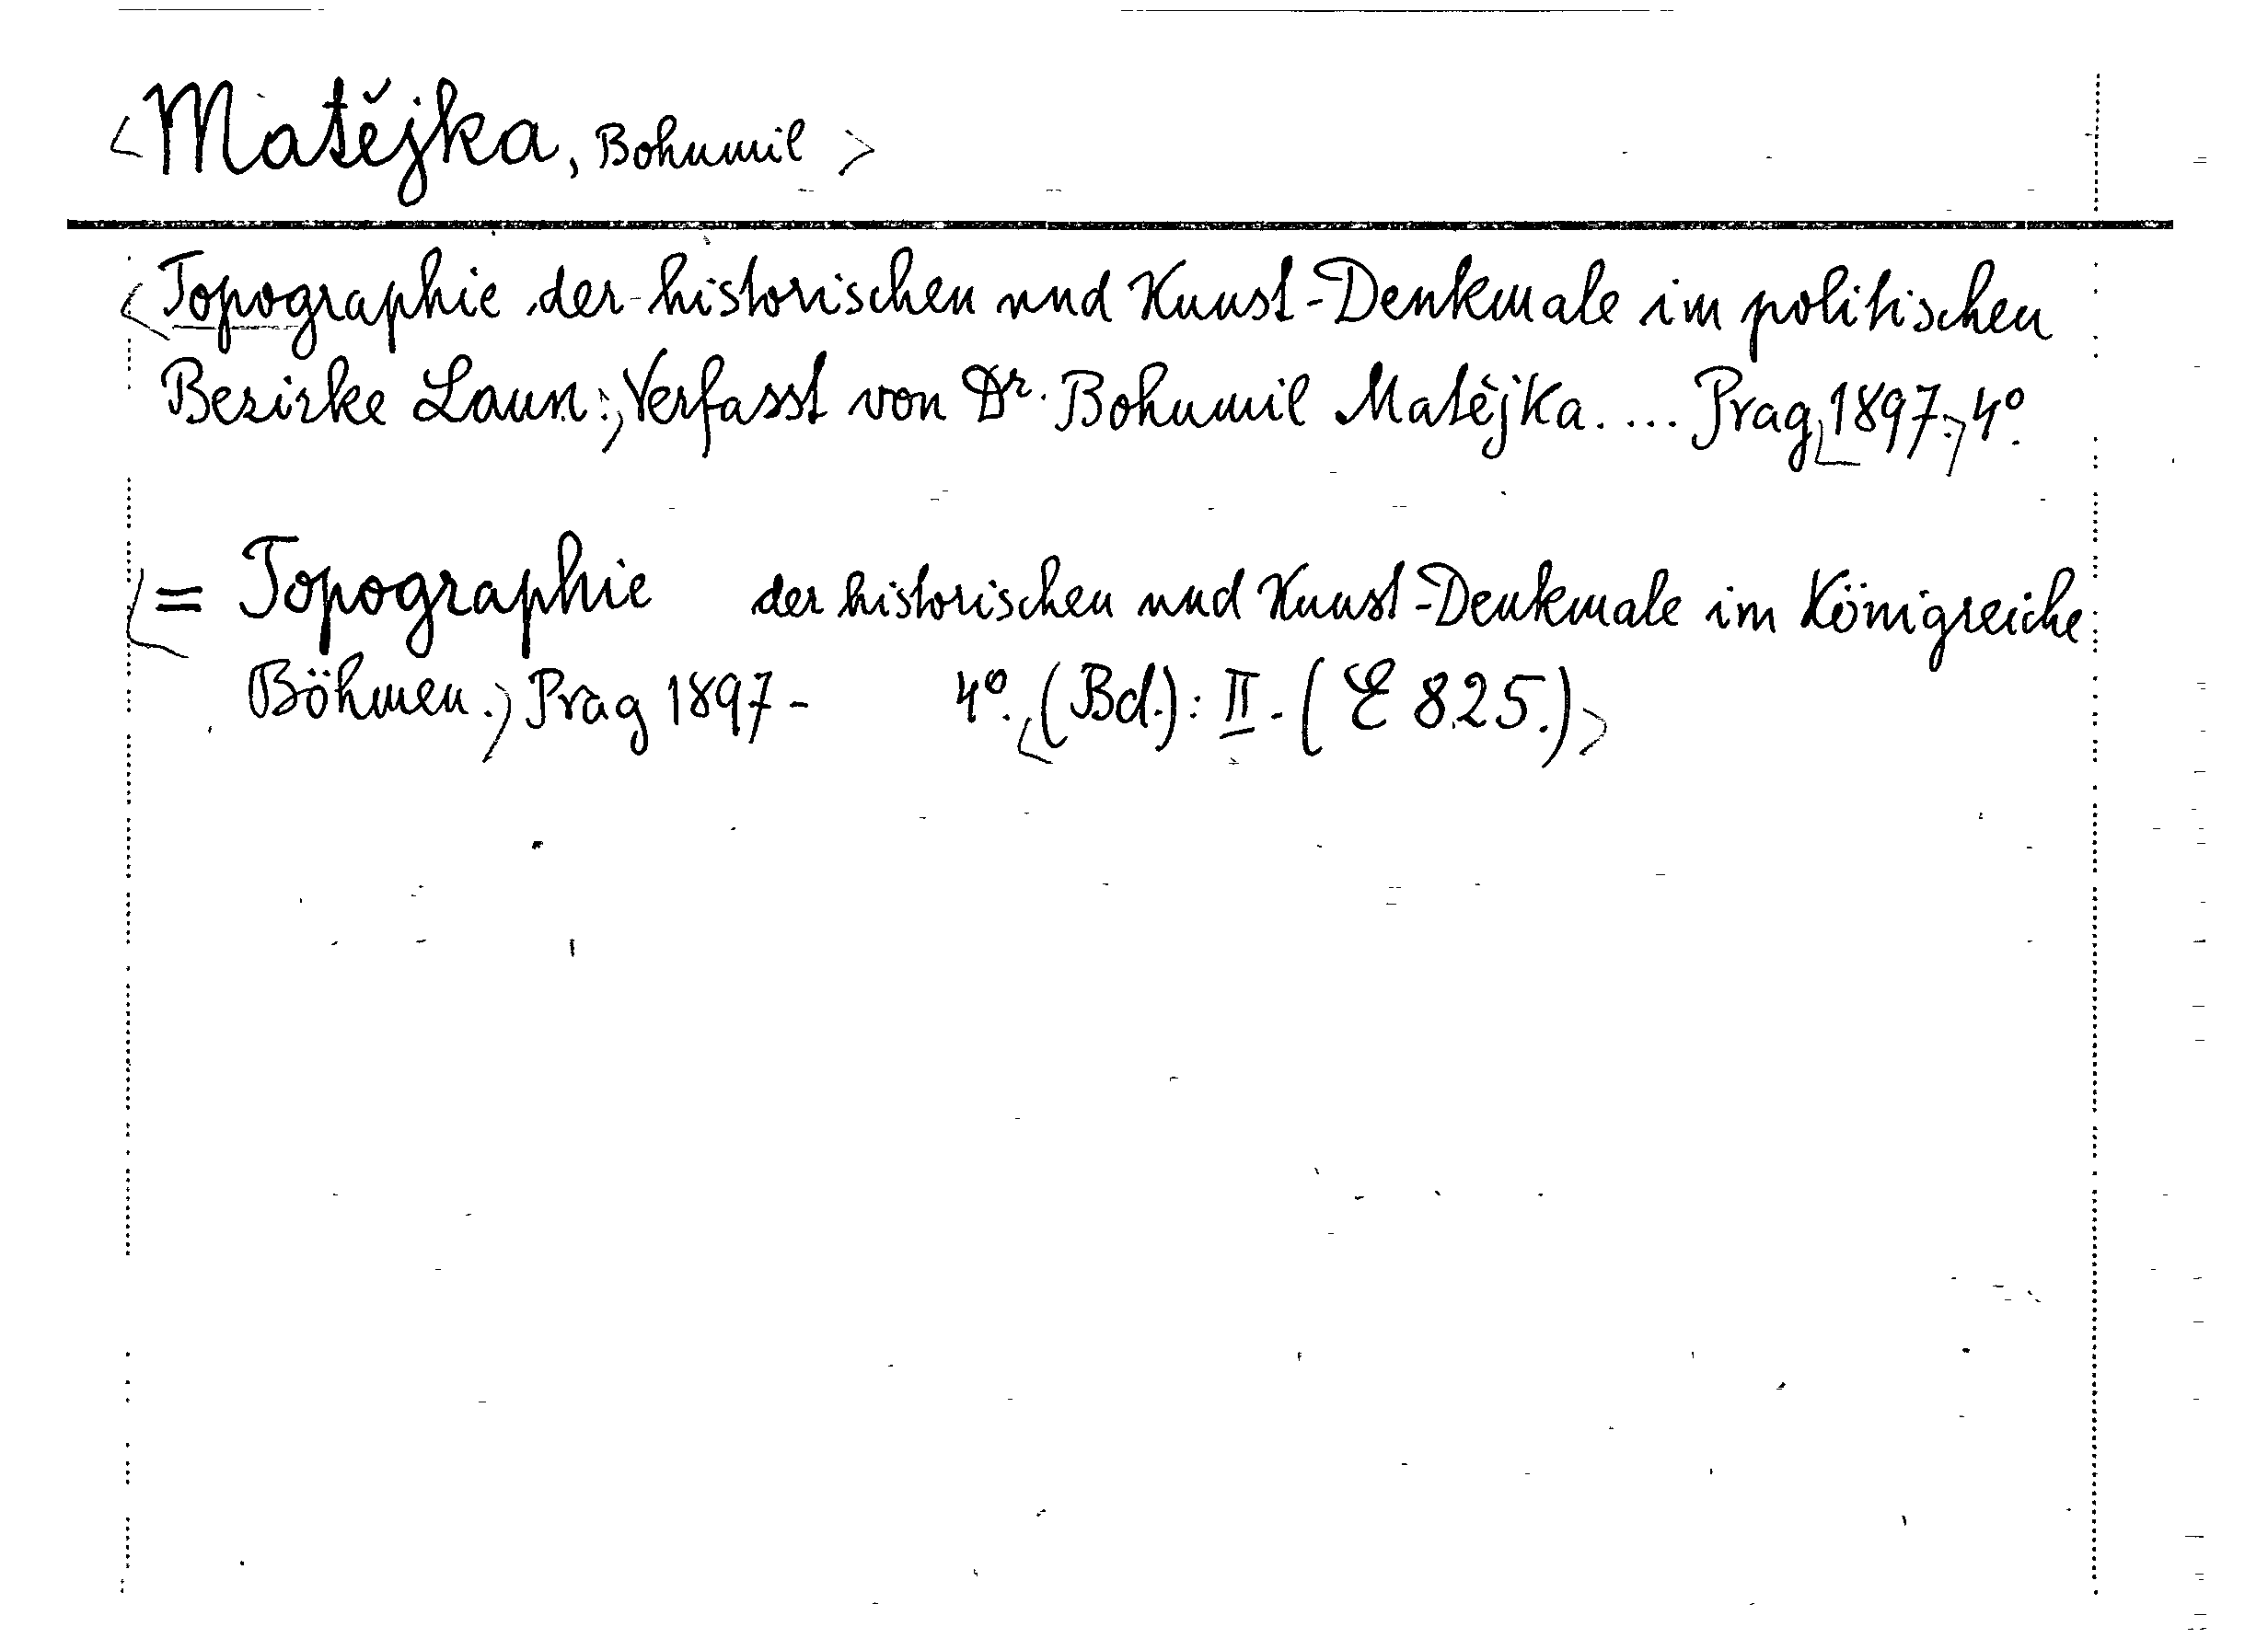 <Matějka, Bohumil>
<Topographie der historischen und Kunst-Denkmale im politischen
Bezirke Laun.> Verfasst von Dr. Bohumil Matějka.... Prag <1897.> 4º.
<= Topographie der historischen und Kunst-Denkmale im Königreiche
Böhmen.> Prag 1897- 4º. <(Bd.): II. (E 825.)>